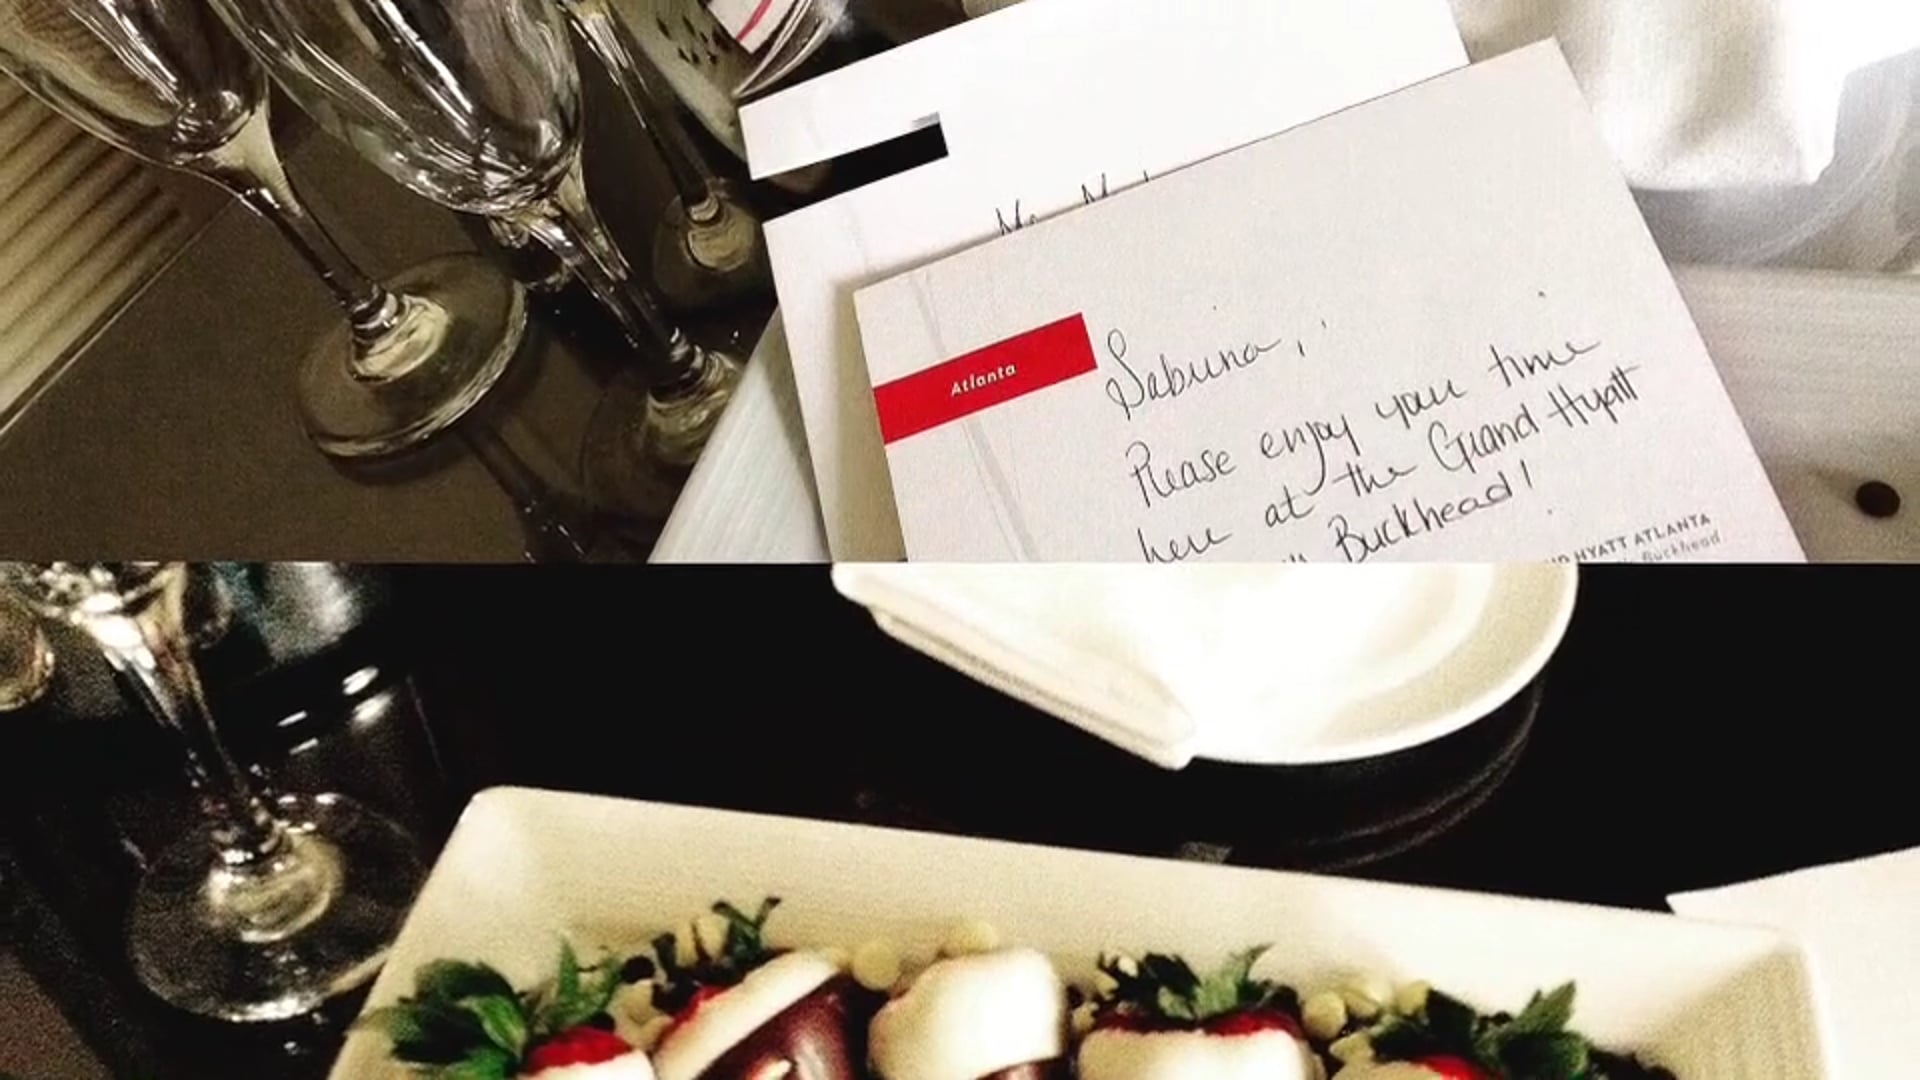 Atlanta
Sabrina,
Please enjoy your time
here at the Grand Hyatt
Buckhead!
HYATT ATLANTA
Buckhead